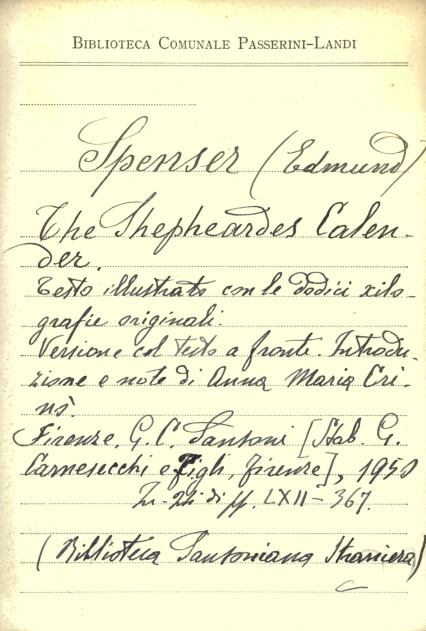 BIBLIOTECA COMUNALE PASSERINI-LANDI
Spenser (Edmund)
The Shepheardes Calen-
der.
Testo illustrato con le dodici xilo-
grafie originali.
Versione col testo a fronte. Introdu-
zione e note di Anna Maria Cri-
nò.
Firenze, G. C. Sansoni [Stab. G.
Carnesecchi e figli, Firenze], 1950
In-24 di pp. LXII-367.
(Biblioteca Sansoniana Straniera)